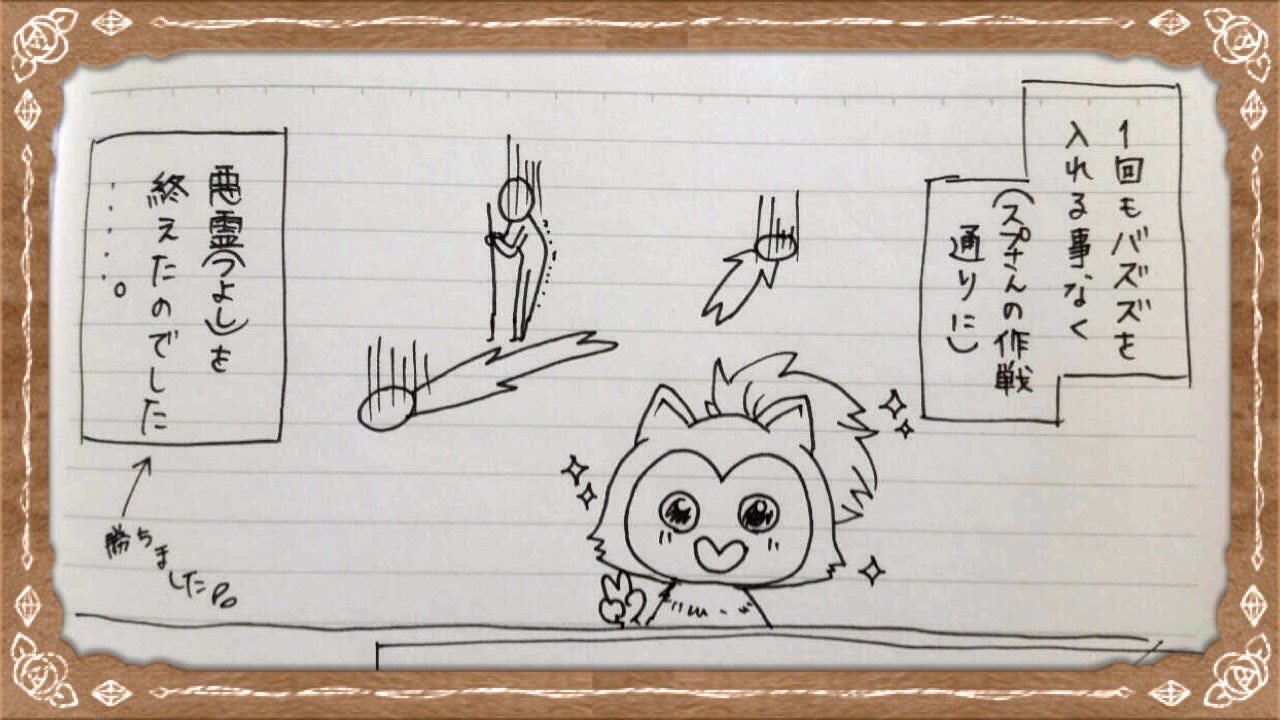 1回もバズズを
入れる事なく
(スプさんの作戦
通りに)
悪霊(つよし)を
終えたのでした
・・・・・。
勝ちましたP。